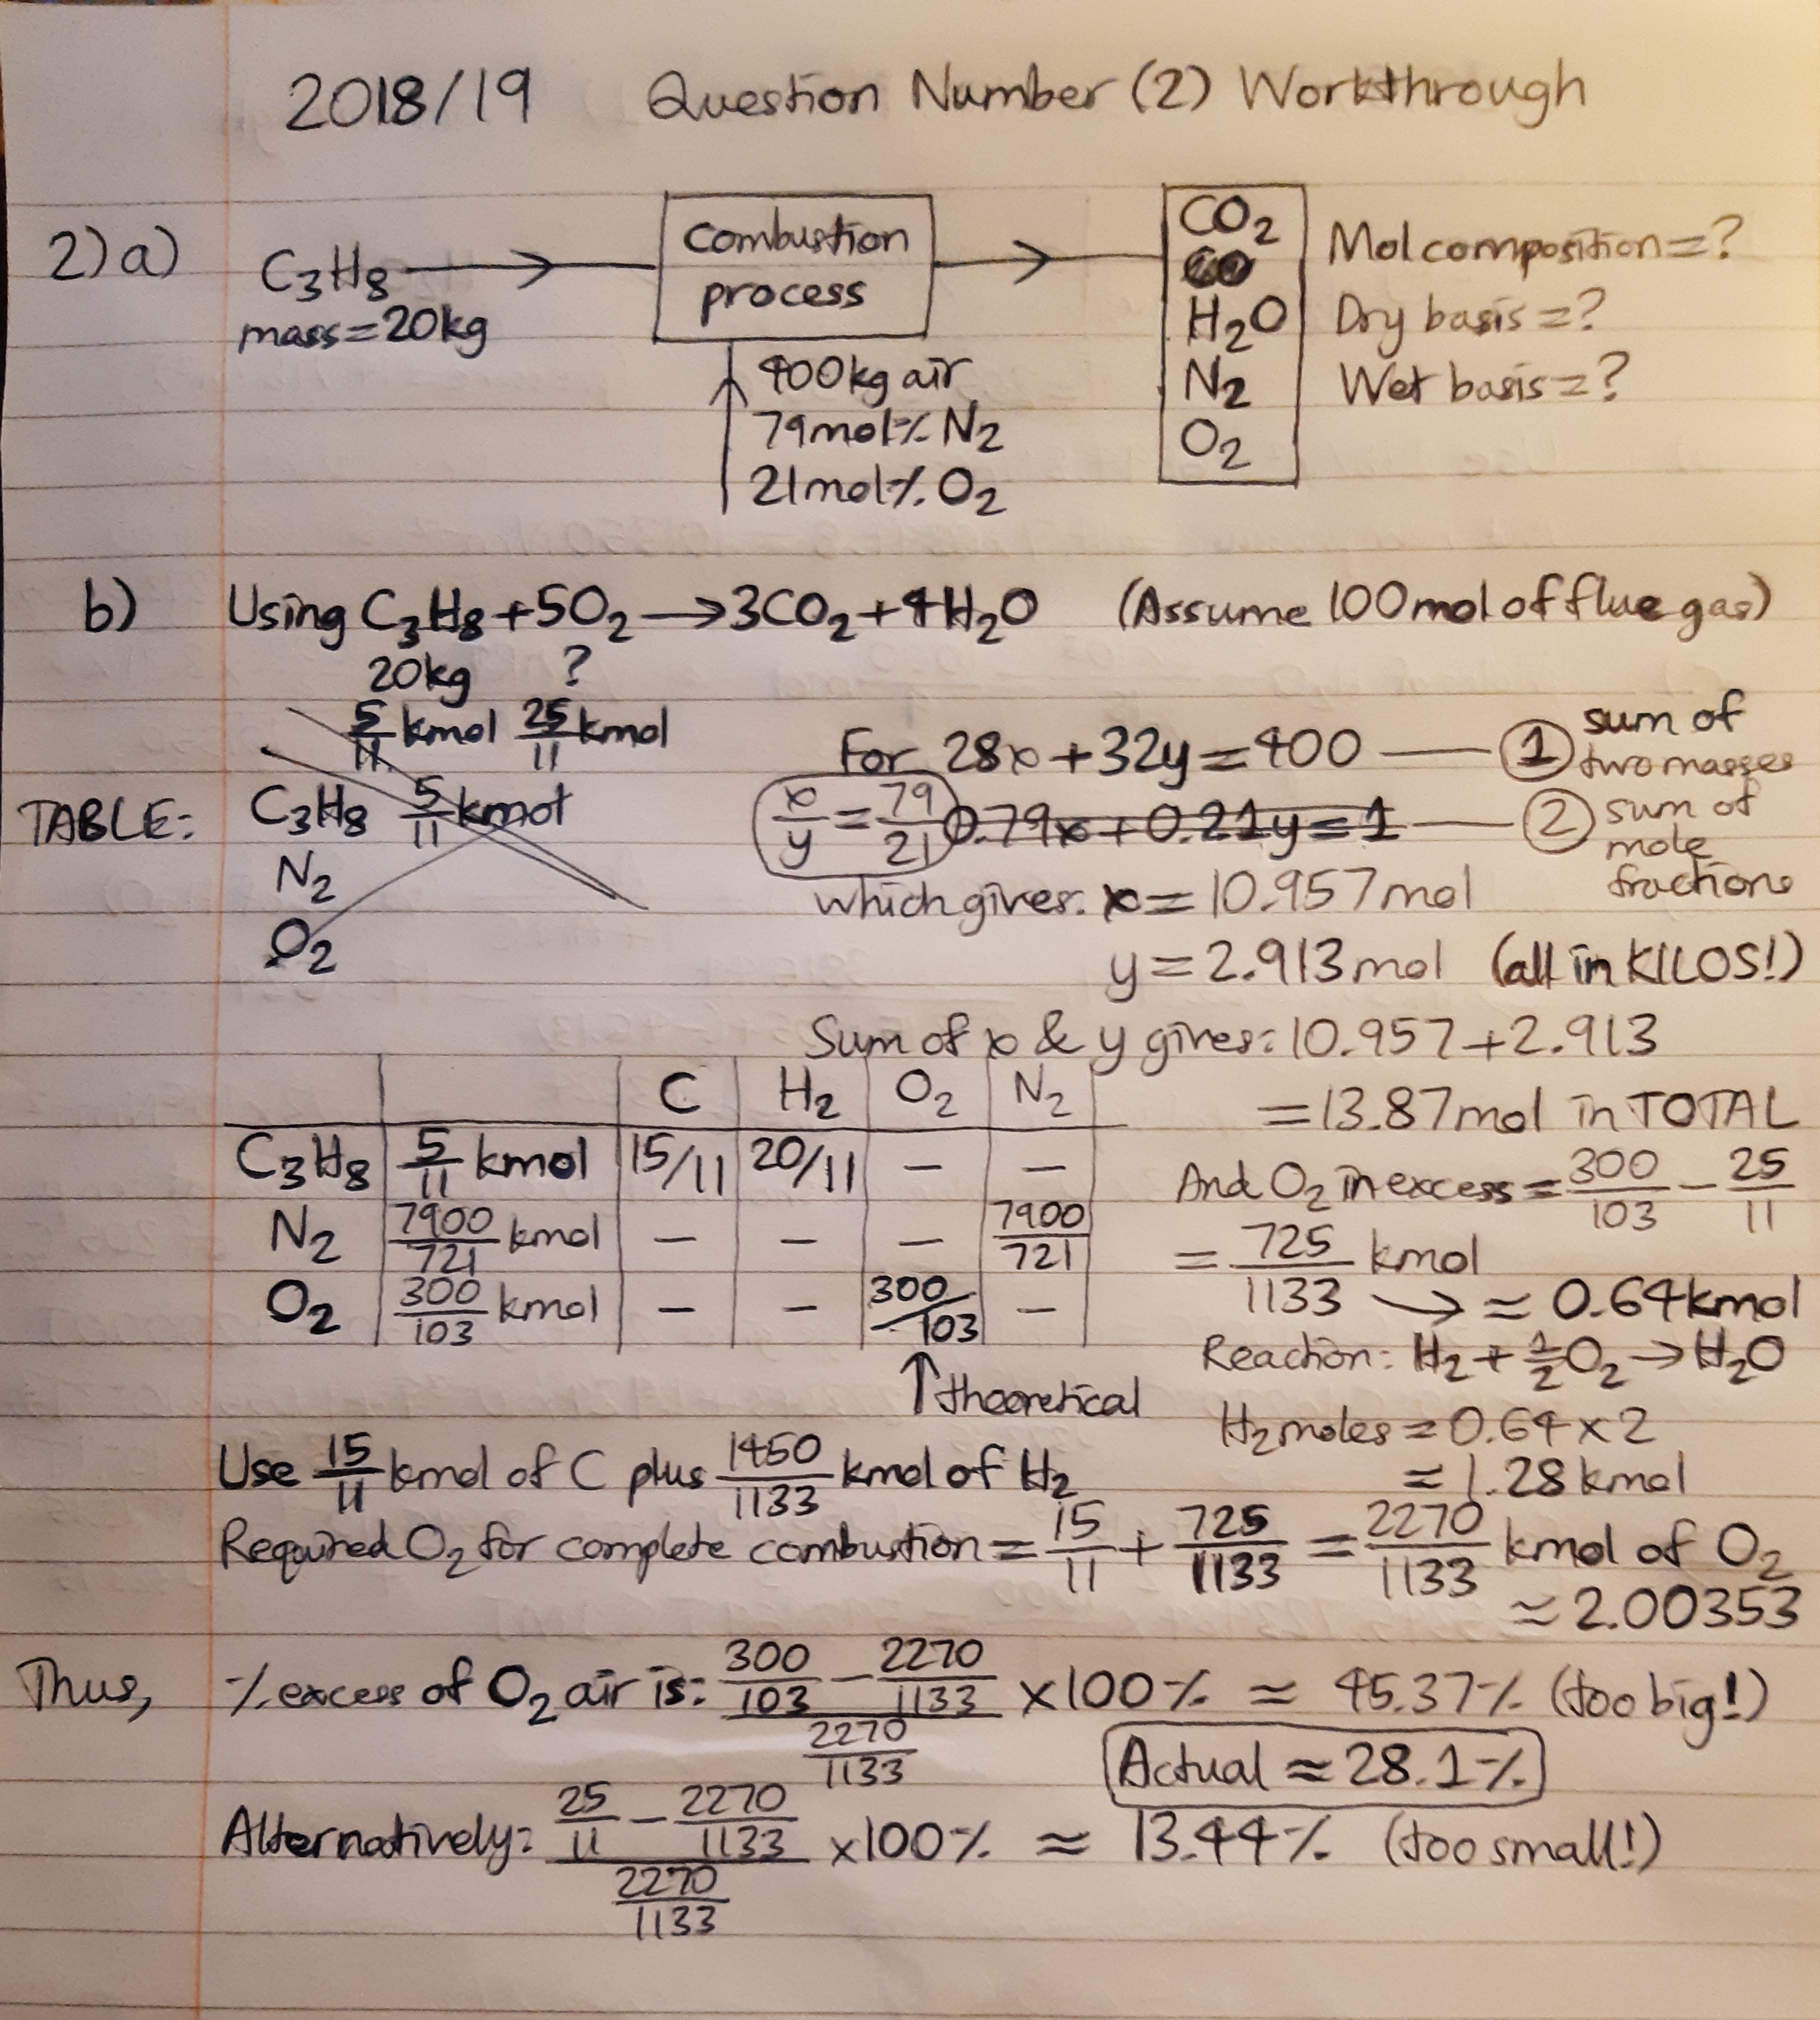 2018/19 Question Number (2) Workthrough
2)a) C₃H₈
mass=20kg
Combustion
process
400kg air
79mol% N₂
21mol% O₂
CO₂
H₂O
N₂
O₂
Mol composition=?
Dry basis=?
Wet basis=?
b) Using C₃H₈+5O₂→3CO₂+4H₂O (Assume 100mol of flue gas)
20kg ?
5/11 kmol 25/11 kmol
TABLE: C₃H₈ 5/11 kmol
N₂
O₂
For 28x+32y=400 — ① sum of two masses
x/y=79/21 0.79x+0.21y=1 — ② sum of mole fractions
which gives: x=10.957mol
y=2.913mol (all in KILOS!)
Sum of x & y gives: 10.957+2.913
=13.87mol in TOTAL
C H₂ O₂ N₂
C₃H₈ 5/11 kmol 15/11 20/11 — —
N₂ 7900/721 kmol — — — 7900/721
O₂ 300/103 kmol — — 300/103 —
↑theoretical
And O₂ in excess=300/103 - 25/11
= 725/1133 kmol
→ ≈ 0.64kmol
Reaction: H₂+1/2O₂→H₂O
H₂moles=0.64×2
≈1.28kmol
Use 15/11 kmol of C plus 1450/1133 kmol of H₂
Required O₂ for complete combustion=15/11+725/1133=2270/1133 kmol of O₂
≈2.00353
Thus, % excess of O₂ air is: (300/103 - 2270/1133)/(2270/1133) ×100% ≈ 45.37% (too big!)
Actual ≈28.1%
Alternatively: (25/11 - 2270/1133)/(2270/1133) ×100% ≈ 13.44% (too small!)